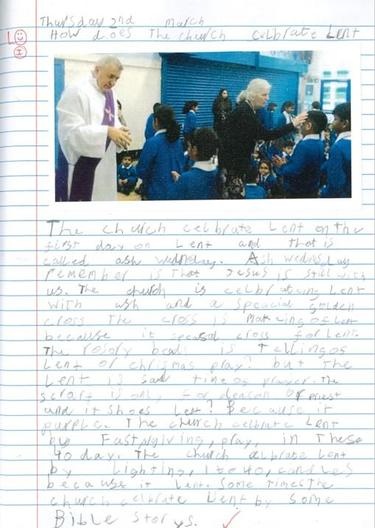 Thursday 2nd march
How does The church celbrate Lent
LO
The church celbrate Lent on the
first day on Lent and that is
called ash wednday. Ash wednsday
remember is that Jesus is still with
us. The church is celbrateing Lent
with ash and a speacial golden
cross the cross is making of Lent
because it speasal cross for Lent.
The beads is Telling os
Lent or chrismas play? but the
Lent is sad time of prayer. the
scraft is only for deacon or priest
and it shoes Lent? Because it
purple. The church celbrate Lent
by Fast, giving, play, in These
40 day. The church celbrate Lent
by Lighting, candles
because it Lent. Some times the
church celbrate Lent by some
Bible storys.